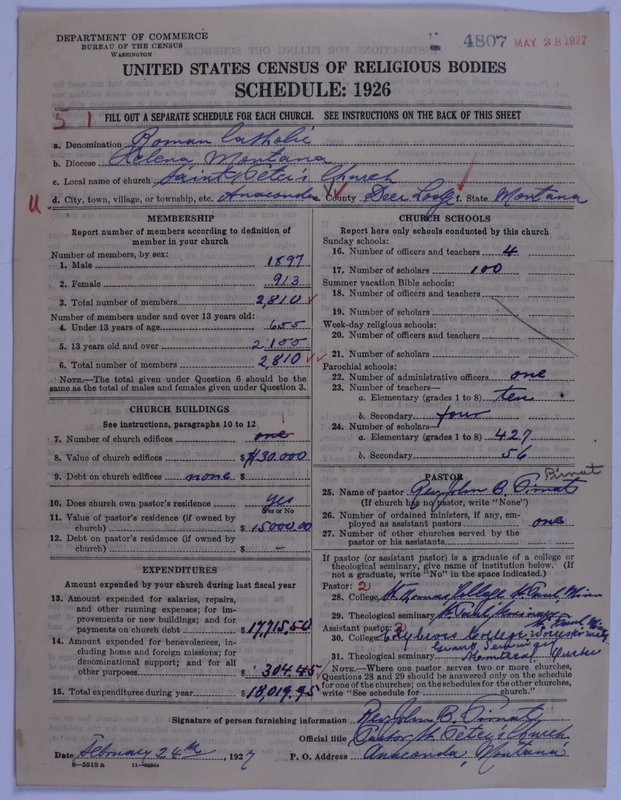 DEPARTMENT OF COMMERCE
BUREAU OF THE CENSUS
WASHINGTON
4807 MAY 28 1927
UNITED STATES CENSUS OF RELIGIOUS BODIES
SCHEDULE: 1926
51
FILL OUT A SEPARATE SCHEDULE FOR EACH CHURCH. SEE INSTRUCTIONS ON THE BACK OF THIS SHEET
a. Denomination Roman Catholic
b. Diocese Helena, Montana
c. Local name of church Saint Peter's Church
U. d. City, town, village, or township, etc. Anaconda County Deer Lodge f. State Montana
MEMBERSHIP
Report number of members according to definition of member in your church
Number of members, by sex:
1. Male 1897
2. Female 913
3. Total number of members 2,810
Number of members under and over 13 years old:
4. Under 13 years of age 655
5. 13 years old and over 2,155
6. Total number of members 2,810
NOTE.—The total given under Question 6 should be the same as the total of males and females given under Question 3.
CHURCH BUILDINGS
See instructions, paragraphs 10 to 12
7. Number of church edifices one 1
8. Value of church edifices $ 130.000
9. Debt on church edifices none $
10. Does church own pastor's residence yes
Yes or No
11. Value of pastor's residence (if owned by church) $ 15000.00
12. Debt on pastor's residence (if owned by church) $ —
EXPENDITURES
Amount expended by your church during last fiscal year
13. Amount expended for salaries, repairs, and other running expenses; for improvements or new buildings; and for payments on church debt $ 17,715.50
14. Amount expended for benevolences, including home and foreign missions; for denominational support; and for all other purposes $ 304.45
15. Total expenditures during year $ 18,019.95
CHURCH SCHOOLS
Report here only schools conducted by this church
Sunday schools:
16. Number of officers and teachers 4
17. Number of scholars 100
Summer vacation Bible schools:
18. Number of officers and teachers
19. Number of scholars
Week-day religious schools:
20. Number of officers and teachers
21. Number of scholars
Parochial schools:
22. Number of administrative officers one
23. Number of teachers—
a. Elementary (grades 1 to 8) ten
b. Secondary four
24. Number of scholars—
a. Elementary (grades 1 to 8) 427
b. Secondary 56
PASTOR Pirnat
25. Name of pastor Rev John B. Pirnat
(If church has no pastor, write "None")
26. Number of ordained ministers, if any, employed as assistant pastors one
27. Number of other churches served by the pastor or his assistants
If pastor (or assistant pastor) is a graduate of a college or theological seminary, give name of institution below. (If not a graduate, write "No" in the space indicated.)
Pastor: 2
28. College St. Thomas College St. Paul, Minn
29. Theological seminary St. Paul Seminary St. Paul Minn
Assistant pastor: 2
30. College Holy Cross College, Worcester
31. Theological seminary Grand Seminary Montreal Quebec
NOTE.—Where one pastor serves two or more churches, Questions 28 and 29 should be answered only on the schedule for one of the churches; on the schedules for the other churches, write "See schedule for church."
Signature of person furnishing information Rev John B. Pirnat
Official title Pastor St. Peter's Church
Date February 24th, 1927 P. O. Address Anaconda, Montana
8—5518 a